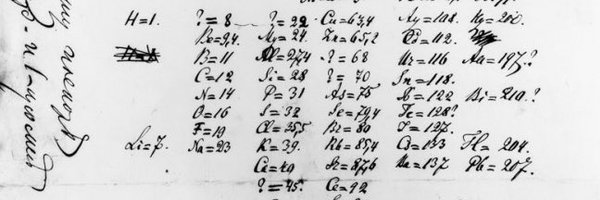 H=1. ?=8 ?=22 Cu=63,4 Ag=108. Hg=200.
Be=9,4 Mg=24. Zn=65,2 Cd=112.
B=11 Al=27,4 ?=68 Ur=116 Au=197?
C=12 Si=28 ?=70 Sn=118.
N=14 P=31 As=75 Sb=122 Bi=210.?
O=16 S=32 Se=79,4 Te=128?
F=19 Cl=35,5 Br=80 J=127.
Li=7. Na=23 K=39. Rb=85,4 Cs=133 Tl=204.
Ca=40 Sr=87,6 Ba=137 Pb=207.
?=45. Ce=92